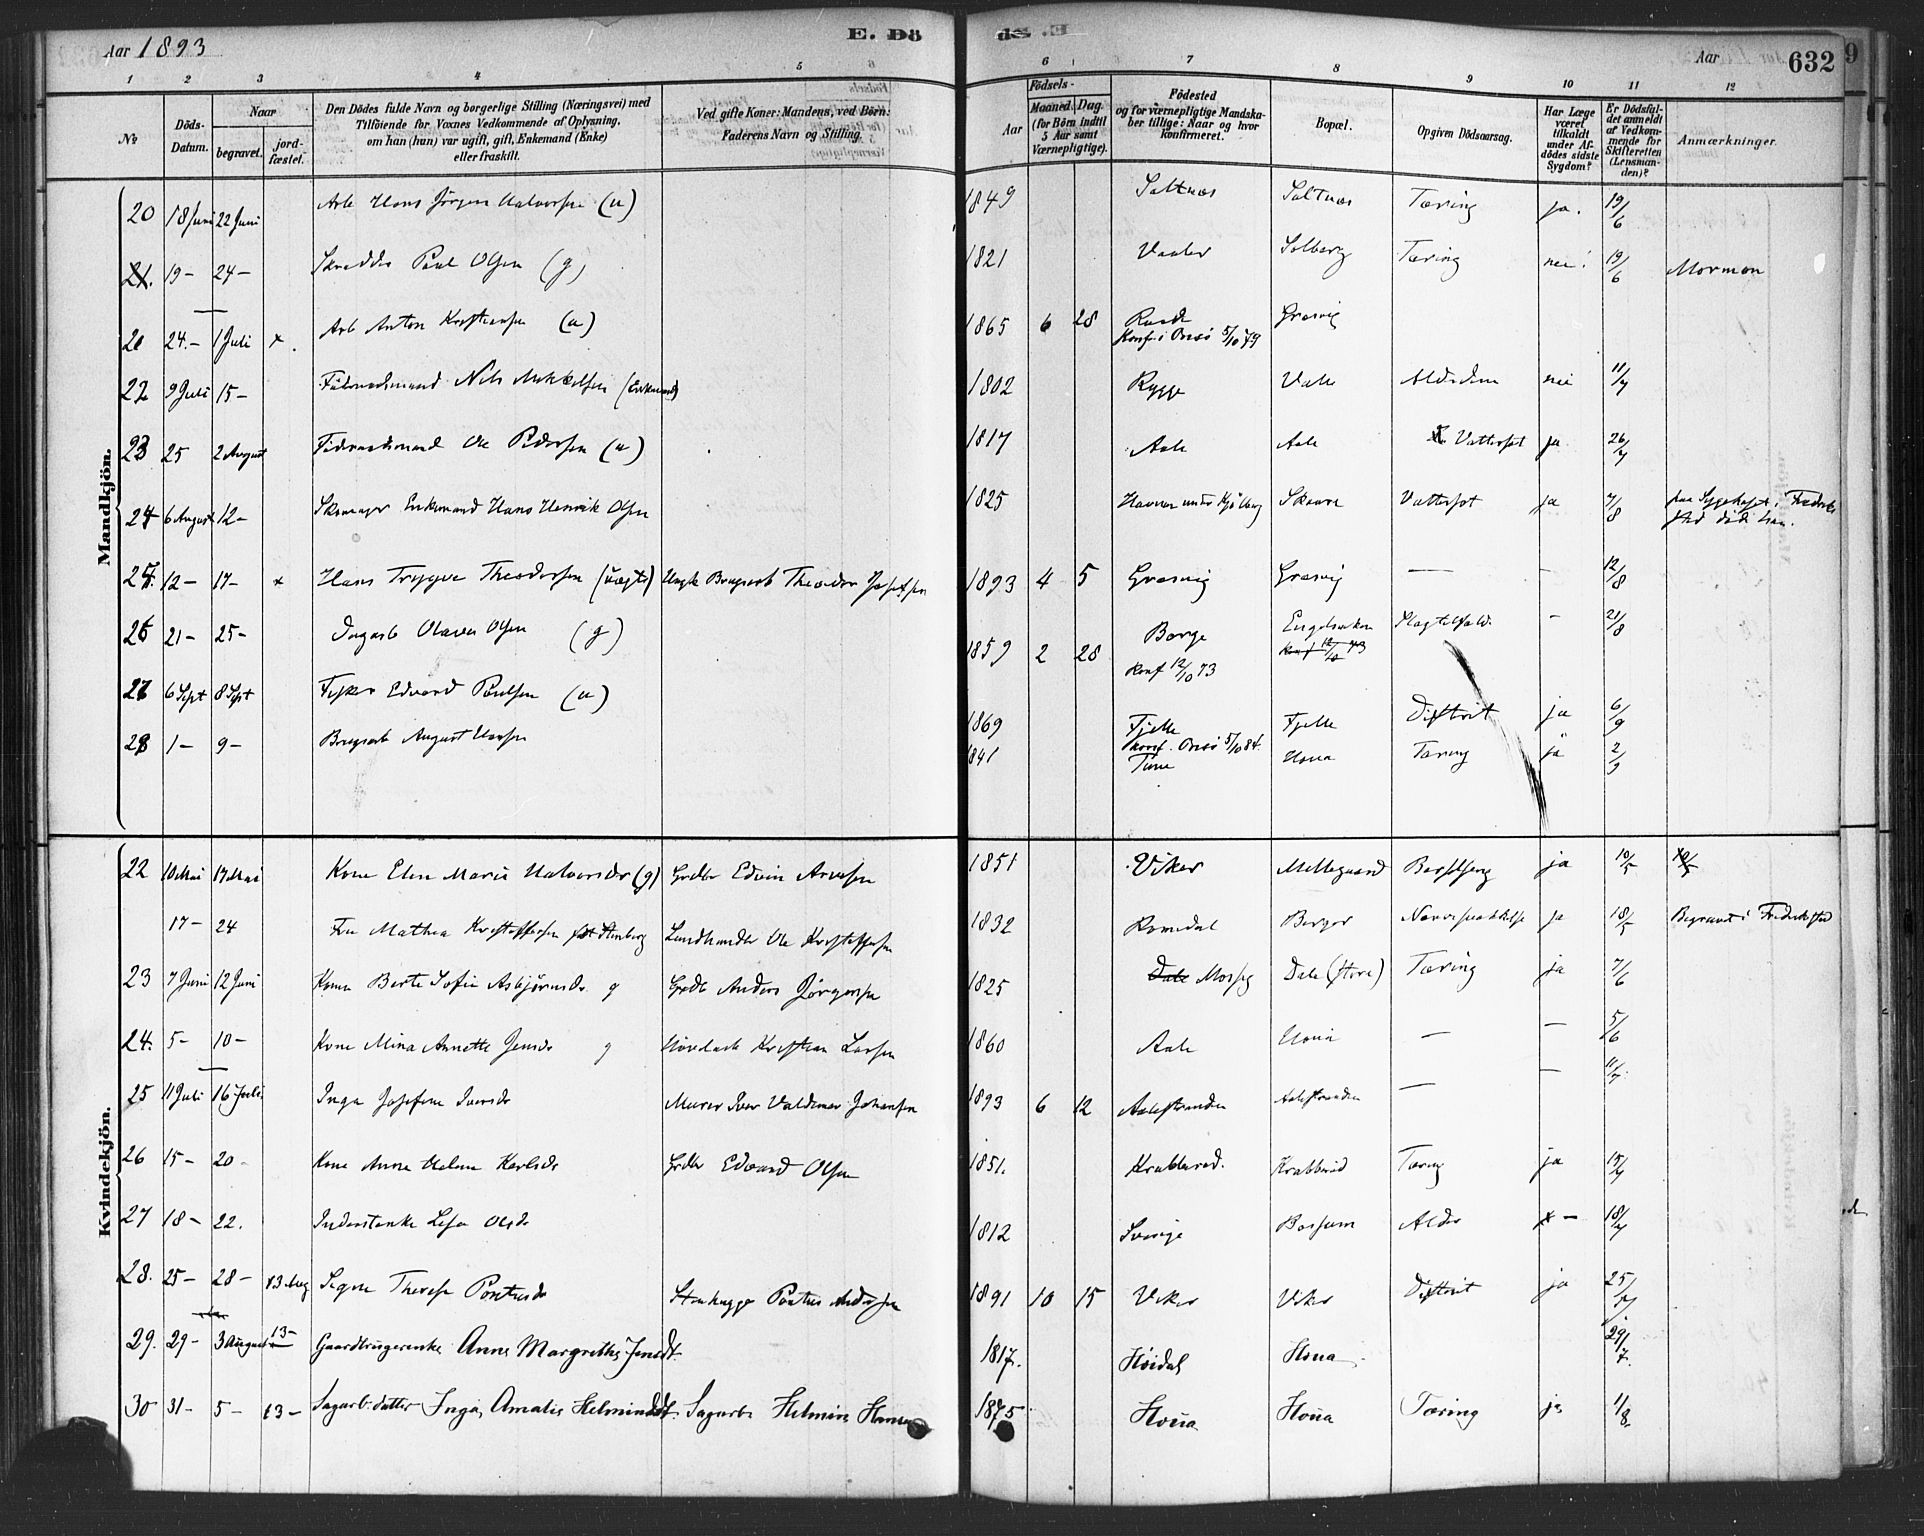 Aar 1893
E. Dö
dé. E.
Aar
632
9
1 2 3 4 5 6 7 8 9 10 11 12
No
Döds-Datum.
Naar
begravet.
jord-fæstet.
Den Dödes fulde Navn og borgerlige Stilling (Næringsvei) med
Tilföiende for Voxnes Vedkommende af Oplysning,
om han (hun) var ugift, gift, Enkemand (Enke)
eller fraskilt.
Ved gifte Koner: Mandens, ved Börn:
Faderens Navn og Stilling.
Födsels-
Aar
Maaned. Dag.
(for Börn indtil
5 Aar samt
Værnepligtige).
Födested
og for værnepligtige Mandska-
ber tillige: Naar og hvor
konfirmeret.
Bopæl.
Opgiven Dödsaarsag.
Har Læge
været
tilkaldt
under Af-
dödes sidste
Sygdom?
Er Dödsfal-
det anmeldt
af Vedkom-
mende for
Skifteretten
(Lensman-
den)?
Anmærkninger.
Mandkjön.
20 18 Juni 22 Juni Arb Hans Jörgen Halvorsen (u) 1849 Saltnæs Saltnæs Tæring ja. 19/6
21. 19 – 24 – Skrædder Paul Olsen (g) 1821 Vaaler Solberg Tæring nei 19/6 Mormon
21 24. – 1 Juli x Arb Anton Kristiansen (u) 1865 6 28 Raade Græsvig
Konf. i Onsö 5/10 79
22 9 Juli 15 – Föderaadsmand Nils Mikkelsen (Enkemand) 1802 Rygge Valle Alderdom nei 11/7
23 25 2 August Föderaadsmand Ole Pedersen (u) 1817 Aale Aale Vattersot ja 26/7
24 6 August 12 – Skomager Enkemand Hans Henrik Olsen 1825 Havnen under Kjölberg Skaare Vattersot ja 7/8 paa Sygehuset i Fredrikstad döde han.
25 12 – 17 – x Hans Trygve Theodorsen (uægte) Ungk Brugsarb Theodor Josefsen 1893 4 5 Græsvig Græsvig — – 12/8
26 21 – 25 – Dagarb Olaves Olsen (g) 1859 2 28 Borge Engelsviken Slagtilfælde – 21/8
konf 12/10 73 konf 12/10 73
27 6 Sept 8 Sept Fisker Edvard Paulsen (u) 1869 Fjelle Fjelle Difterit ja 6/9
konf. Onsö 5/10 84.
28 1 – 9 – Brugsarb August Hansen 1841 Tune Houa Tæring ja 2/9
Kvindekjön.
22 10 Mai 17 Mai Kone Elen Marie Halvorsdr (g) Grdbr Edvin Arnesen 1851 Viker Mellegaard Barselseng ja 10/5
17 – 24 Fru Mathea Kristoffersen född Stenberg Landhandler Ole Kristoffersen 1832 Romedal Berger ja 18/5 Begravet i Fredrikstad
23 7 Juni 12 Juni Kone Berte Sofie Asbjörnsdr g Grdb Anders Jörgensen 1825 Dale Mosseg Dale (store) Tæring ja 7/6
24. 5 – 10 – Kone Mina Annette Jensdr g Kristian Larsen 1860 Aale Houa — — 5/6
25 11 Juli 16 Juli Inga Josefine Iversdr Murer Iver Valdemar Johansen 1893 6 12 Aalestranden Aalestranden — — 11/7
26 15 – 20 – Kone Anne Helene Karlsdr Grdbr Edvard Olsen 1851. Krabberöd. Krabberöd Tæring ja 15/7
27 18 – 22. Inderstenke Lisa Olsdr 1812 Sverige Bossum Alder x – 18/7
28. 25 – 28 – 13 Aug Signe Therese Pontusdr Stenhugger Pontus Andersen 1891 10 15 Viker Viker Difterit ja 25/7
29. 29 – 3 August 13 – Gaardbrugerenke Anne Margrethe Jensdt. 1817. Höidal Houa 29/7.
30 31 – 5 – 13 – Sagarb. datter Inga Amalie Helminsdt. Sagarb. Helmin Hansen 1875 Houa Houa Tæring ja 1/8.